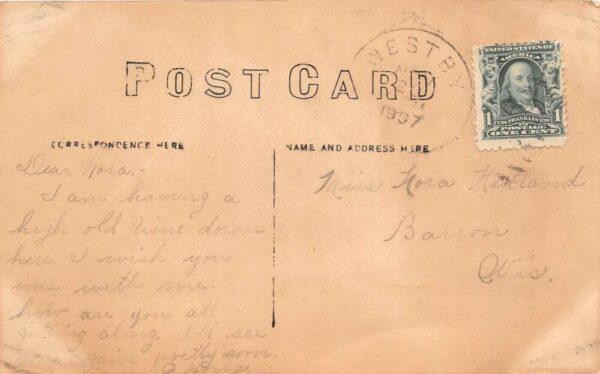 WESTBY
1907
UNITED STATES OF
AMERICA
1 FRANKLIN 1
POSTAGE
ONE CENT
POST CARD
CORRESPONDENCE HERE
NAME AND ADDRESS HERE
Dear Nora,-
I am having a
high old time down
here I wish you
was with me
how are you all
getting along. I'll see
you again pretty soon.
Miss Nora
Barron
Wis.